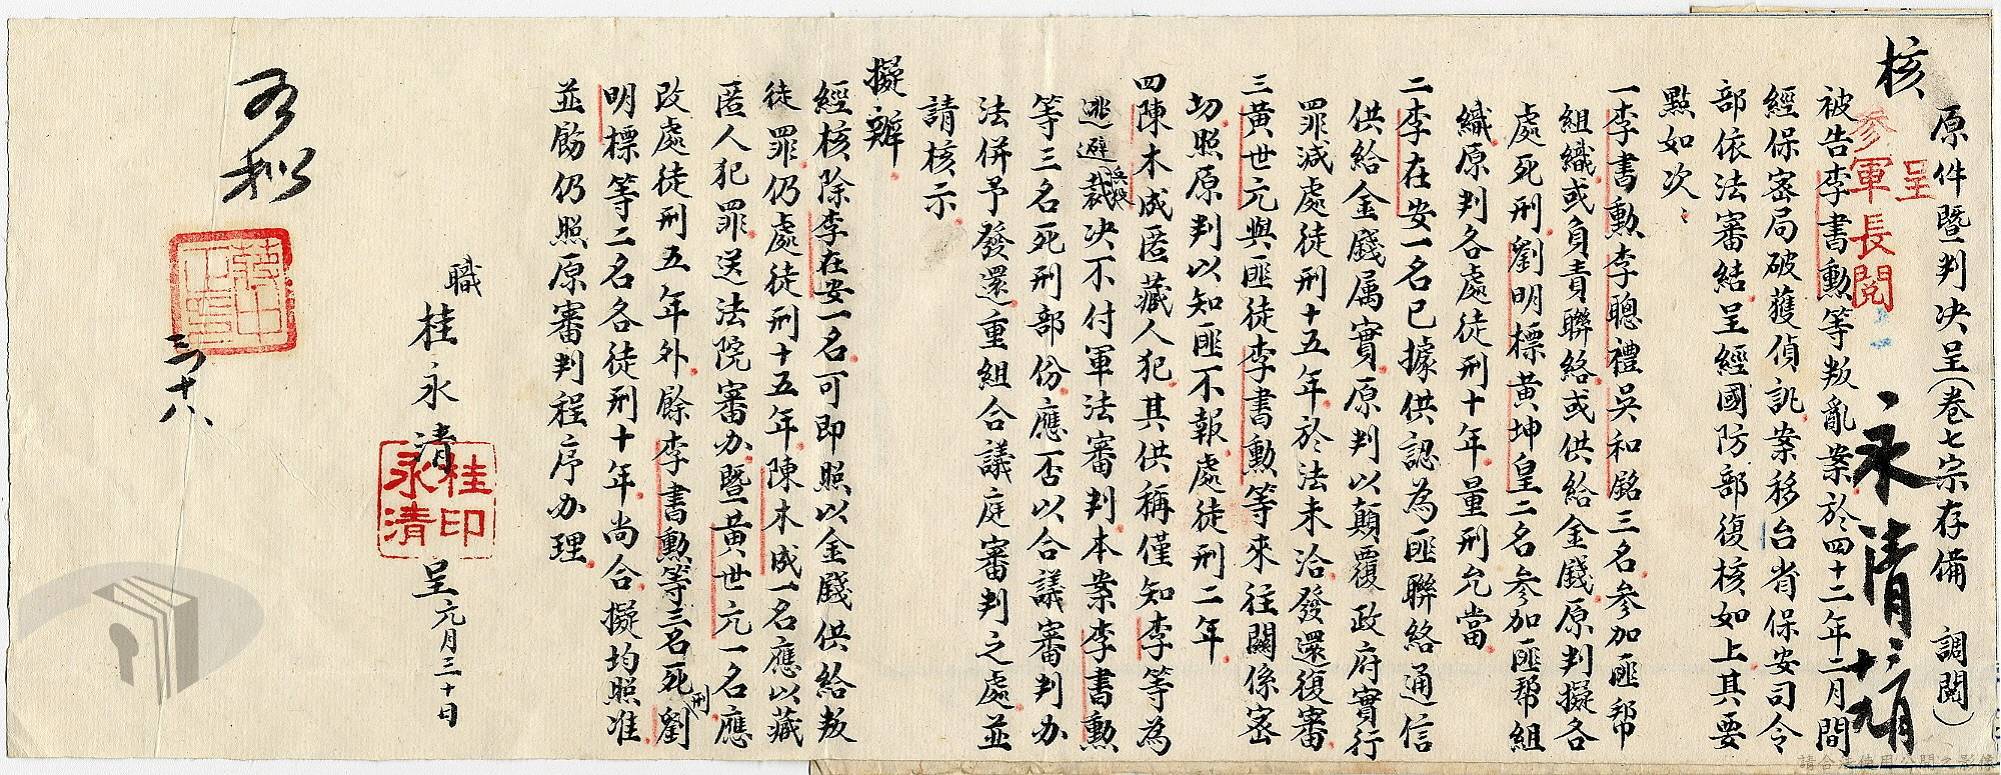 原件暨判决呈(卷七宗存備 調閱)
核
呈
參軍長閱
永清
被告李書勳等叛亂案於四十二年二月間
經保密局破獲偵訊案移台省保安司令
部依法審結呈經國防部復核如上其要
點如次：
一李書勳李聰禮吳和銘三名參加匪幫
組織或負責聯絡或供給金錢原判擬各
處死刑劉明標黃坤皇二名參加匪幫組
織原判各處徒刑十年量刑允當
二李在安一名已據供認為匪聯絡通信
供給金錢属實原判以顛覆政府實行
罪減處徒刑十五年於法未洽發還復審
三黃世元與匪徒李書勳等來往關係密
切照原判以知匪不報處徒刑二年
四陳木成匿藏人犯其供稱僅知李等為
逃避兵役裁决不付軍法審判本案李書勳
等三名死刑部份應否以合議審判办
法併予發還重組合議庭審判之處並
請核示
擬辦
經核除李在安一名可即照以金錢供給叛
徒罪仍處徒刑十五年陳木成一名應以藏
匿人犯罪送法院審办暨黃世元一名應
改處徒刑五年外餘李書勳等三名死刑劉
明標等二名各徒刑十年尚合擬均照准
並飭仍照原審判程序办理
職
桂永清
桂永清印
呈元月三十日
如擬
蔣中正印
三十八
請合法使用公開之影像